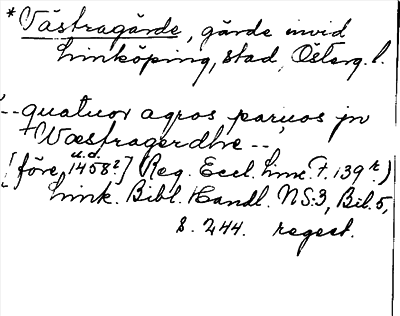 *Västragärde, gärde invid
Linköping, stad, Österg. l.
--quatuor agros paruos jn
Wæstragerdhe--
u.d.
[före 1458?] (Reg. Eccl. Linc. F. 139 r.)
Link. Bibl. Handl. NS:3, Bil. 5,
s. 244. regest.